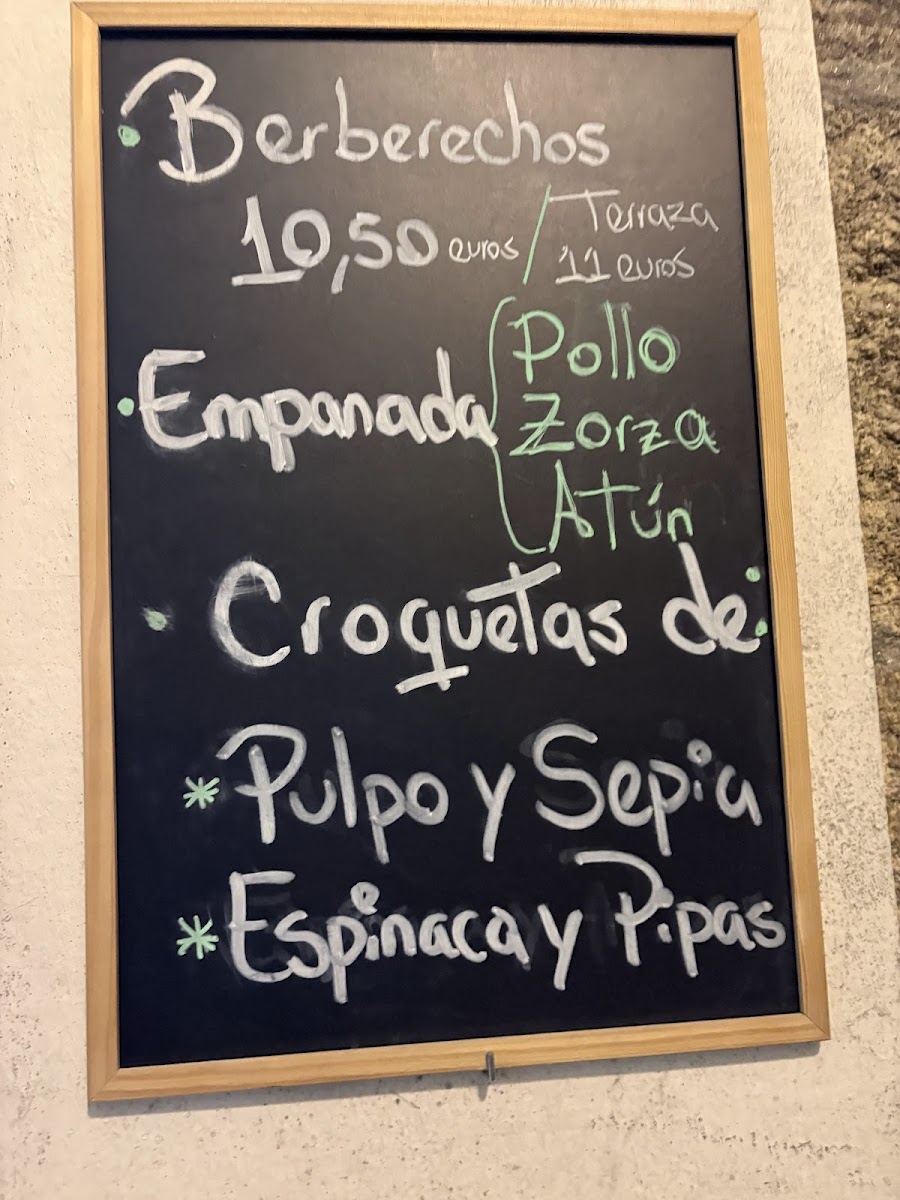 • Berberechos
10,50 euros / Terraza
11 euros
• Empanada { Pollo
Zorza
Atún
• Croquetas de:
* Pulpo y Sepia
* Espinaca y Pipas